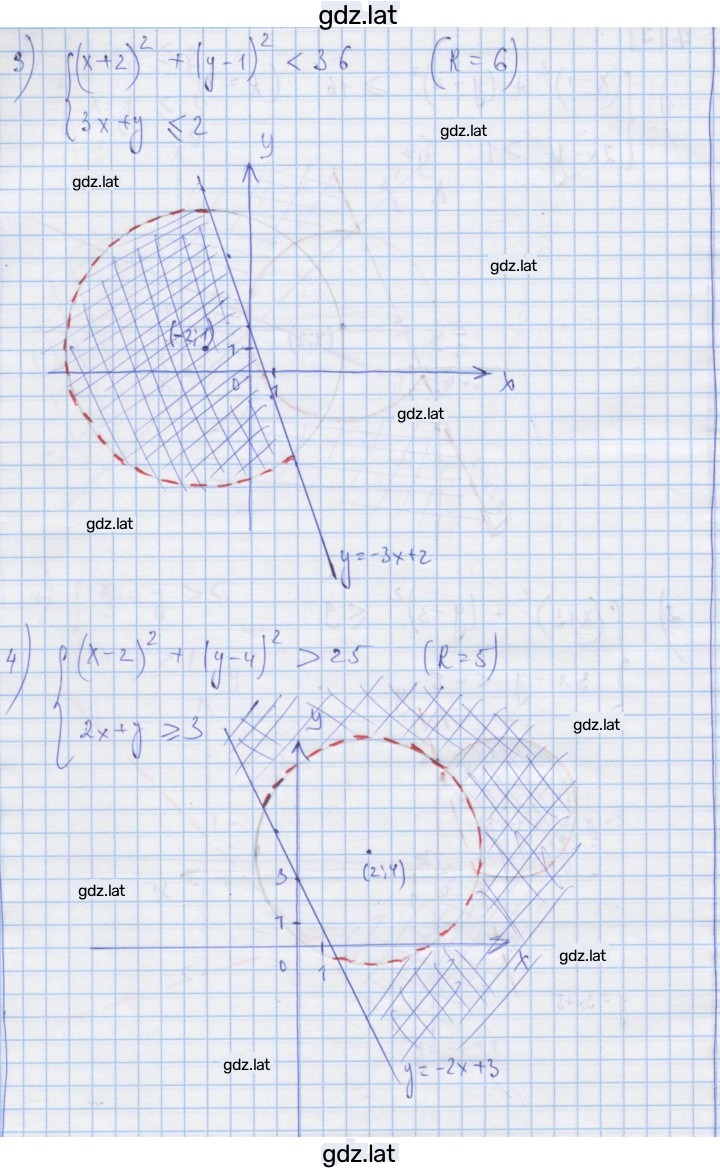 gdz.lat
3) (x+2)² + (y-1)² < 36 (R=6)
3x+y ≤ 2
gdz.lat
y
gdz.lat
gdz.lat
(-2;1)
1
0
1
x
gdz.lat
gdz.lat
y=-3x+2
4) (x-2)² + (y-4)² > 25 (R=5)
2x+y ≥ 3
y
gdz.lat
(2;4)
3
gdz.lat
1
0
1
x
gdz.lat
gdz.lat
y=-2x+3
gdz.lat